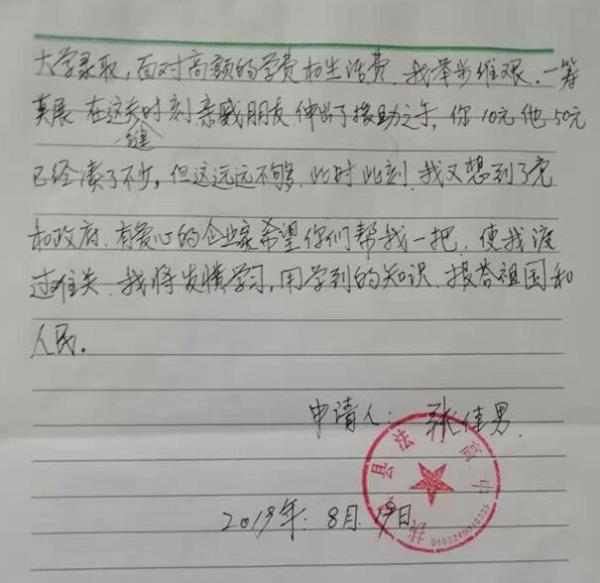 大学录取，面对高额的学费和生活费，我举步维艰，一筹
莫展 在这关时刻亲戚朋友伸出了援助之手，你10元他50元
键
已经凑了不少，但这远远不够，此时此刻，我又想到了党
和政府，有爱心的企业家希望你们帮我一把，使我渡
过难关，我将发愤学习，用学到的知识，报答祖国和
人民。
申请人：张佳男
2019年8月19日
县法 高中